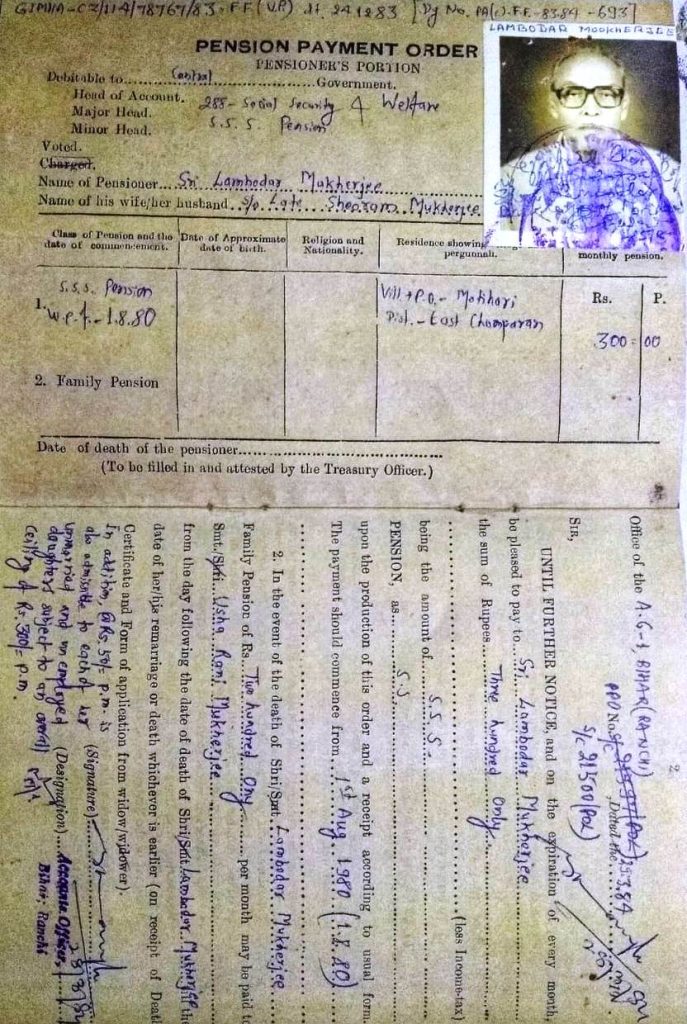 GIMHA-CZ/114/78767/83-F.F.(V.P) dt. 24.12.83 [Dy No. PA(c).F.F.-8384-693]
LAMBODAR MOOKHERJEE
PENSION PAYMENT ORDER
PENSIONER'S PORTION
Debitable to......Central......Government.
Head of Account.
Major Head. 288- Social Security & Welfare
Minor Head. S.S.S. Pension
Voted.
Charged.
Name of Pensioner...Sri Lambodar Mukherjee
Name of his wife/her husband...S/o Late Sheoram Mukherjee
Class of Pension and the date of commencement. Date of Approximate date of birth. Religion and Nationality. Residence showing pergunnah. monthly pension.
1. S.S.S. Pension Vill + P.O.- Motihari Rs. P.
w.e.f.- 1.8.80 Dist.- East Champaran 300=00
2. Family Pension
Date of death of the pensioner..........
(To be filled in and attested by the Treasury Officer.)
2
Office of the A.G-I, BIHAR (RANCHI)
PPO No. S/C , Dated the 25.3.84
S/C 21500 (POL)
SIR,
UNTIL FURTHER NOTICE, and on the expiration of every month
be pleased to pay to...Sri Lambodar Mukherjee
the sum of Rupees...Three hundred Only
(less Income-tax)
being the amount of...S.S.S.
PENSION, as...S.S
upon the production of this order and a receipt according to usual form.
The payment should commence from 1st Aug. 1980 (1.8.80)
2. In the event of the death of Shri/Smt. Lambodar Mukherjee
Family Pension of Rs...Two hundred Only...per month may be paid to
Smt./Shri...Usha Rani Mukherjee
from the day following the date of death of Shri/Smt. Lambodar Mukherjee till the
date of her/his remarriage or death whichever is earlier (on receipt of Death
Certificate and Form of application from widow/widower).
In addition, @ Rs. 50/= p.m. is
also admissible to each of her
unmarried and unemployed
daughters subject to an overall
ceiling of Rs. 300/= p.m.
(Signature)
(Designation) Accounts Officer,
Bihar, Ranchi